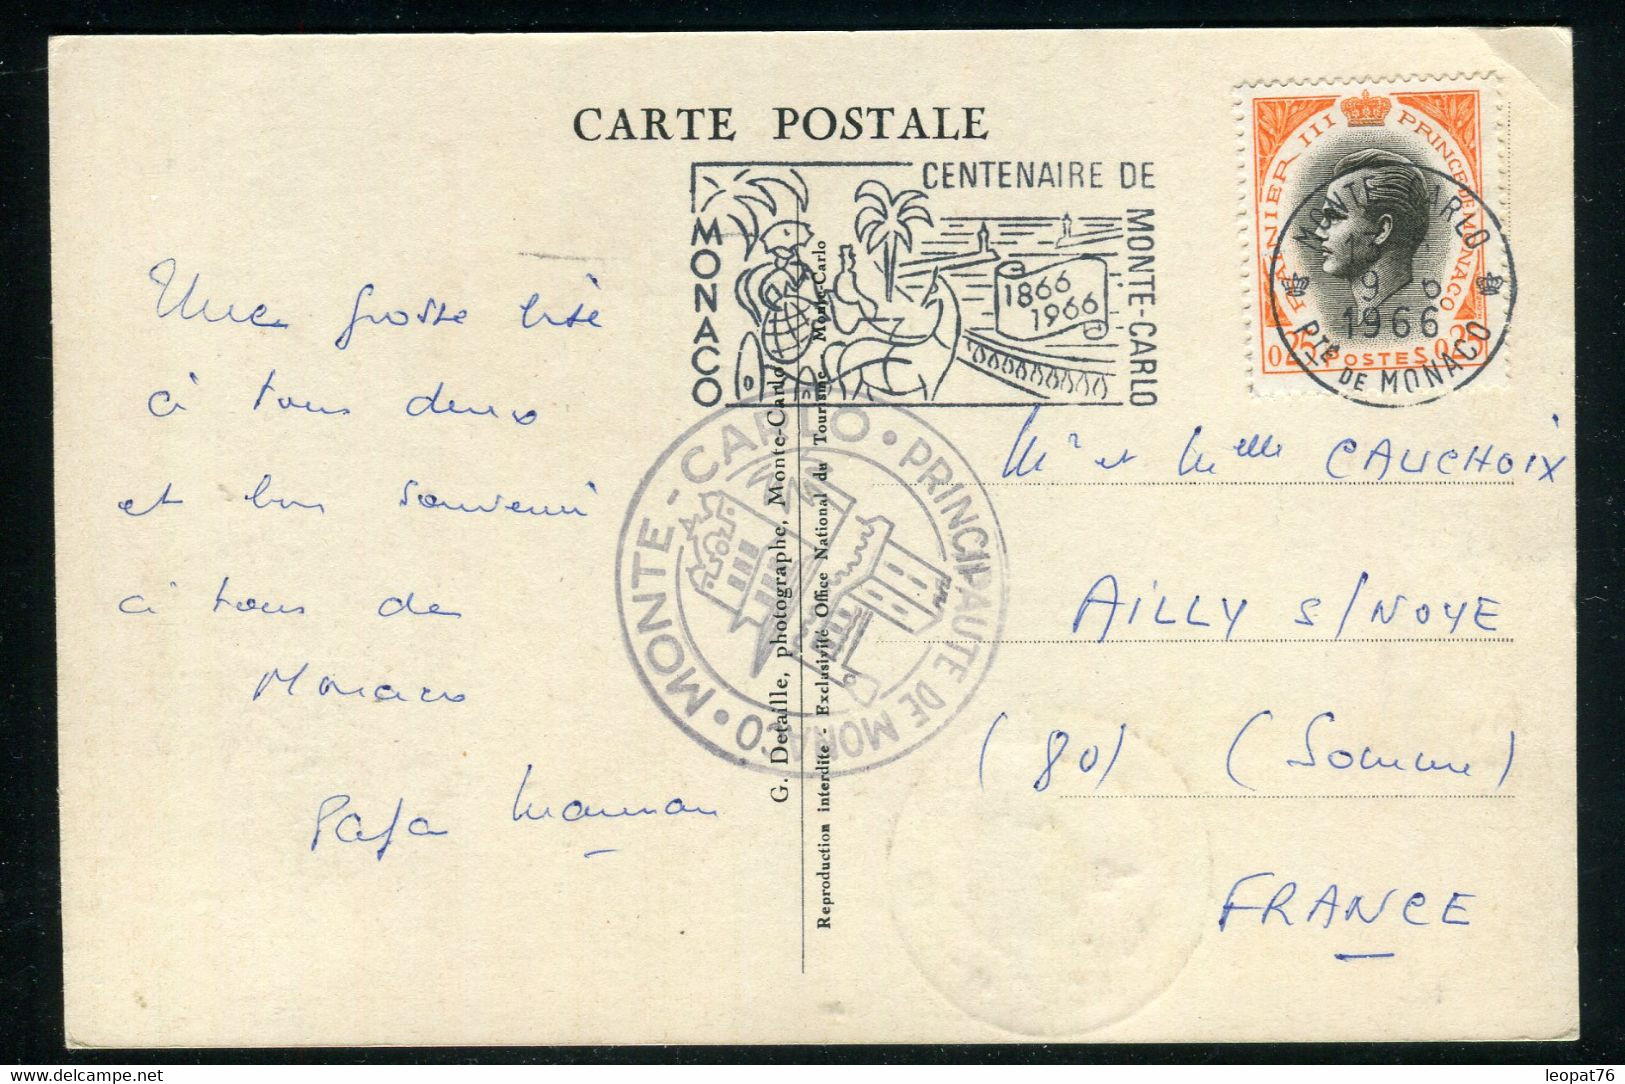 CARTE POSTALE
CENTENAIRE DE
MONTE-CARLO
MONACO
1866
1966
RAINIER III PRINCE DE MONACO
0,25 POSTES 0,25
MONTE CARLO
9 6
1966
PTÉ DE MONACO
MONTE-CARLO • PRINCIPAUTE DE MONACO •
G. Detaille, photographe, Monte-Carlo
Reproduction interdite - Exclusivité Office National du Tourisme Monte-Carlo
Une grosse bise
à tous deux
et bon souvenir
à tous de
Monaco
Papa Maman
Mr et Melle CAUCHOIX
AILLY s/NOYE
(80) (Somme)
FRANCE
www.delcampe.net
leopat76